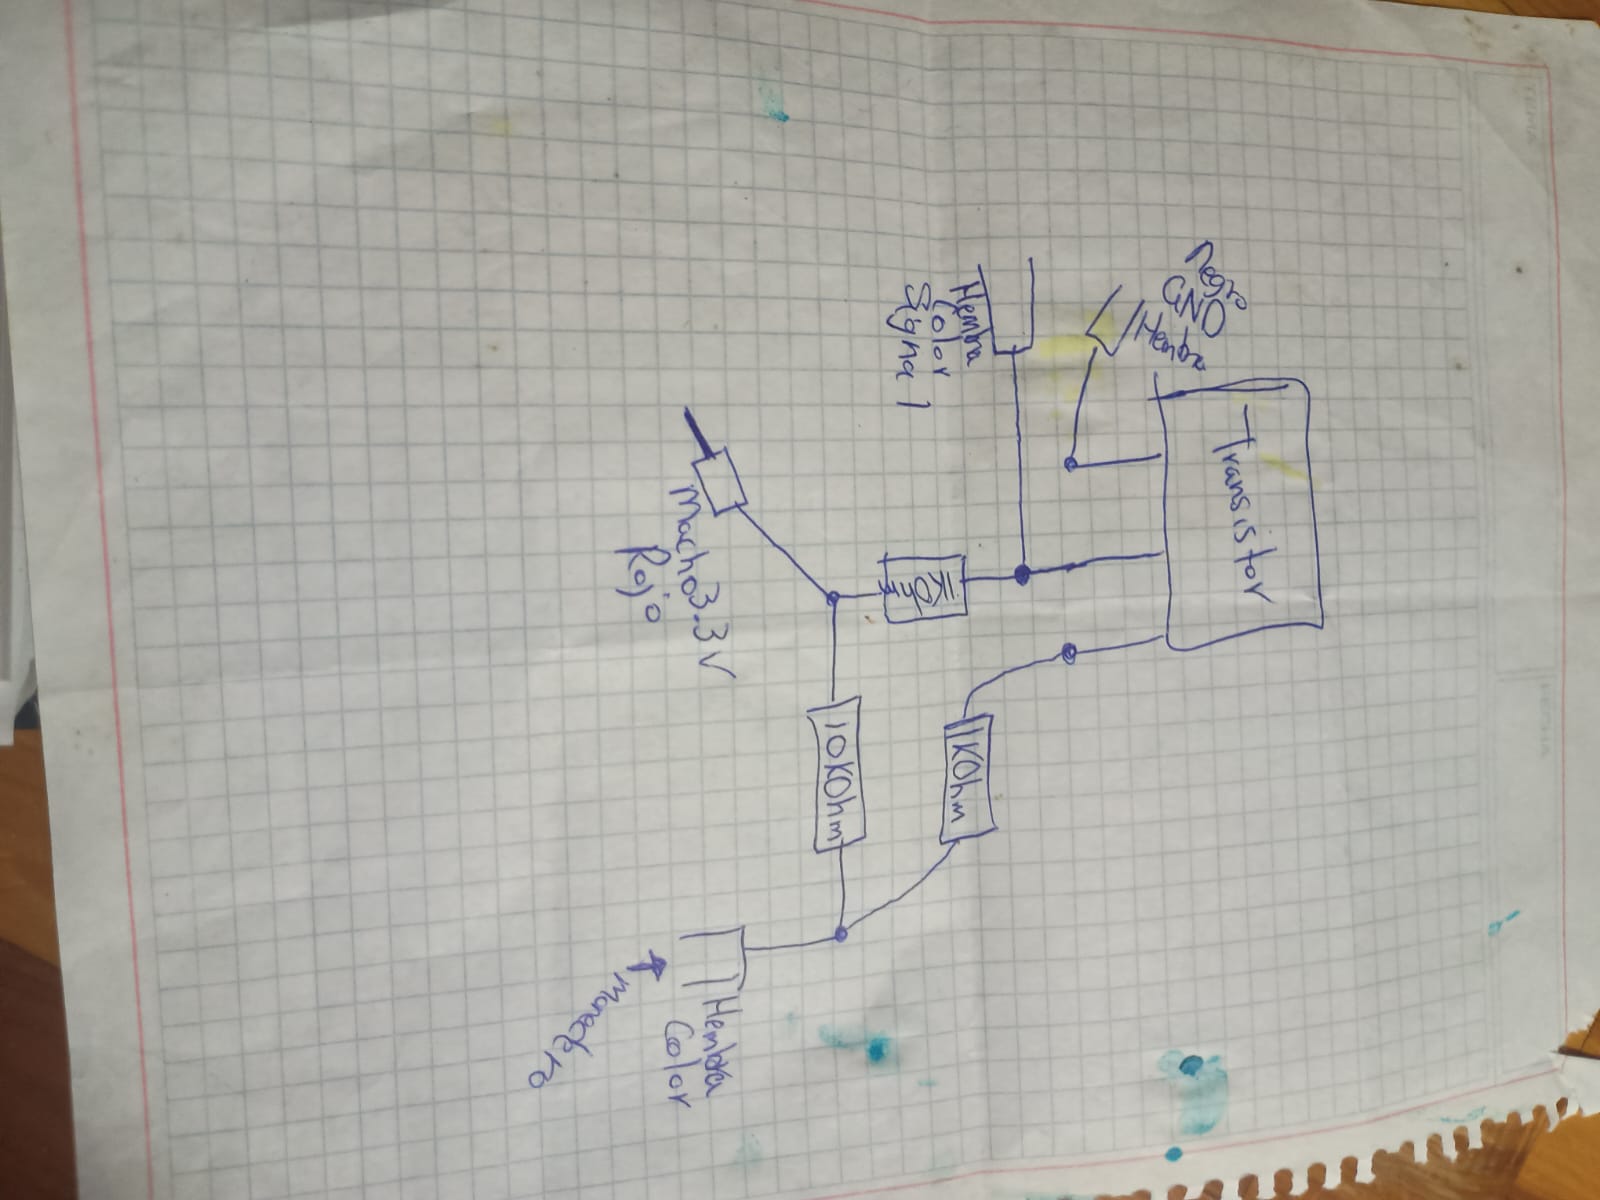 TEMA
FECHA
Transistor
Negro
GND
Hembra
Hembra
Color
Signal
1KOhm
1KOhm
10KOhm
Macho 3.3V
Rojo
Hembra
Color
Monedero